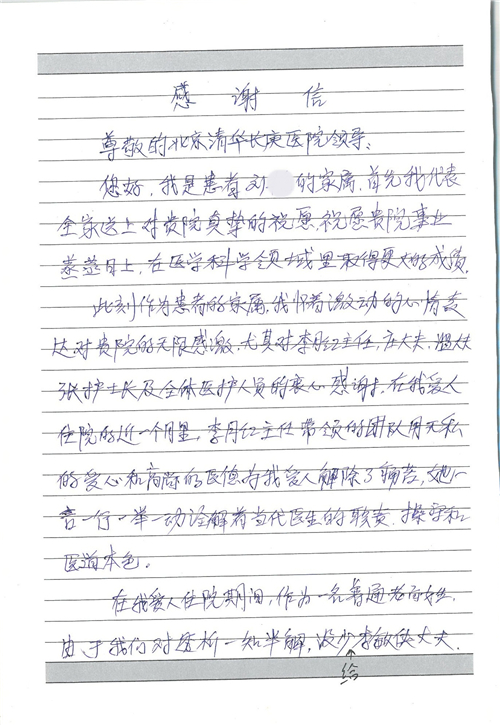 感 谢 信
尊敬的北京清华长庚医院领导：
您好，我是患者刘 的家属，首先我代表
全家送上对贵院真挚的祝愿，祝愿贵院事业
蒸蒸日上，在医学科学领域里取得更大的成绩。
此刻作为患者的家属，我怀着激动的心情表
达对贵院的无限感激，尤其对李月红主任，庄大夫，
张护士长及全体医护人员的衷心感谢！在我爱人
住院的近一个月里，李月红主任带领的团队用无私
的爱心和高尚的医德为我爱人解除了病苦，她们一
言一行一举一动诠解着当代医生的职责，操守和
医道本色。
在我爱人住院期间，作为一名普通老百姓，
由于我们对透析一知半解，没少李敏侠大夫
给